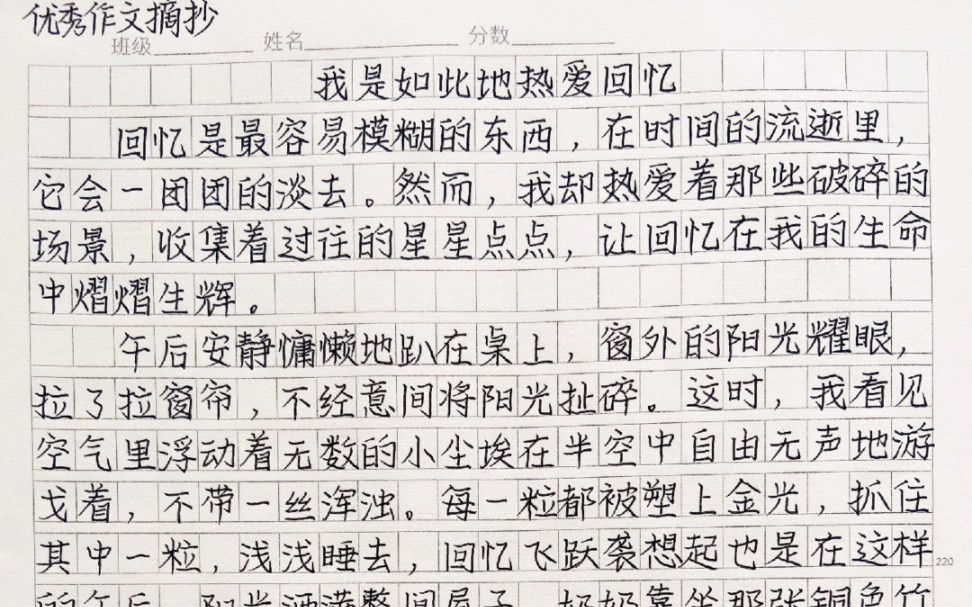 优秀作文摘抄
班级 姓名 分数
我是如此地热爱回忆
回忆是最容易模糊的东西，在时间的流逝里，
它会一团团的淡去。然而，我却热爱着那些破碎的
场景，收集着过往的星星点点，让回忆在我的生命
中熠熠生辉。
午后安静慵懒地趴在桌上，窗外的阳光耀眼，
拉了拉窗帘，不经意间将阳光扯碎。这时，我看见
空气里浮动着无数的小尘埃在半空中自由无声地游
戈着，不带一丝浑浊。每一粒都被塑上金光，抓住
其中一粒，浅浅睡去，回忆飞跃袭想起也是在这样
220
的午后，阳光洒满整间屋子，奶奶靠坐那张铜色竹